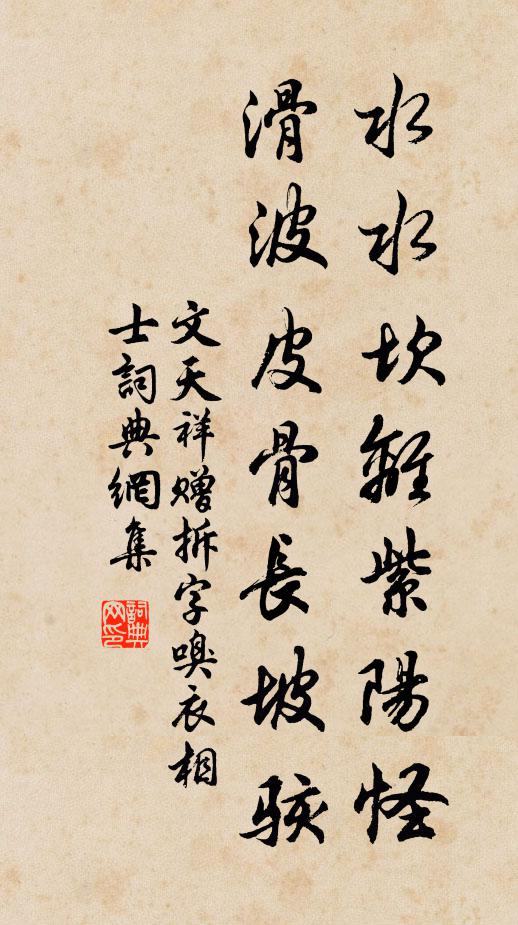 水水坎離紫陽怪
滑波皮骨長坡駭
文天祥贈拆字嗅衣相
士詞典網集
詞典网印